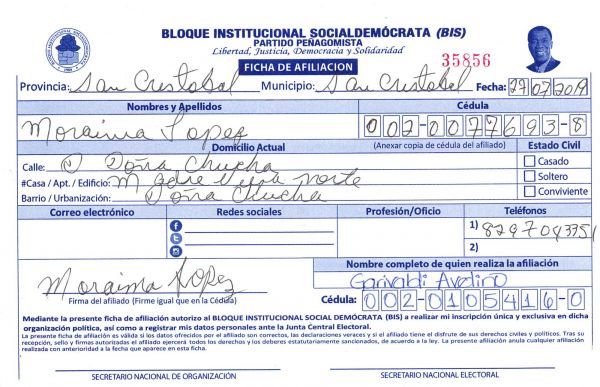 BLOQUE INSTITUCIONAL SOCIALDEMÓCRATA (BIS)
PARTIDO PEÑAGOMISTA
Libertad, Justicia, Democracia y Solidaridad
FICHA DE AFILIACION
35856
Provincia: San Cristobal Municipio: San Cristobal Fecha: 27/07/2019
Nombres y Apellidos Cédula
Moraima Lopez 002-0077693-8
Domicilio Actual (Anexar copia de cédula del afiliado) Estado Civil
Calle: Doña Chucha Casado
#Casa / Apt. / Edificio: Madre Vieja norte Soltero
Barrio / Urbanización: Doña Chucha Conviviente
Correo electrónico Redes sociales Profesión/Oficio Teléfonos
1) 8297043351
2)
Moraima Lopez
Firma del afiliado (Firme igual que en la Cédula)
Nombre completo de quien realiza la afiliación
Garivaldi Avelino
Cédula: 002-0105416-0
Mediante la presente ficha de afiliación autorizo al BLOQUE INSTITUCIONAL SOCIAL DEMÓCRATA (BIS) a realizar mi inscripción única y exclusiva en dicha
organización política, así como a registrar mis datos personales ante la Junta Central Electoral.
La presente ficha de afiliación es válida si los datos ofrecidos por el afiliado son correctos, las declaraciones veraces y si el afiliado tiene el disfrute de sus derechos civiles y políticos. Tras su
recepción, sello y firmas autorizadas el afiliado ejercerá todos los derechos y los deberes estatutariamente sancionados, de acuerdo a la ley. La presente afiliación anula cualquier afiliación
realizada con anterioridad a la fecha que aparece en esta ficha.
SECRETARIO NACIONAL DE ORGANIZACIÓN SECRETARIO NACIONAL ELECTORAL